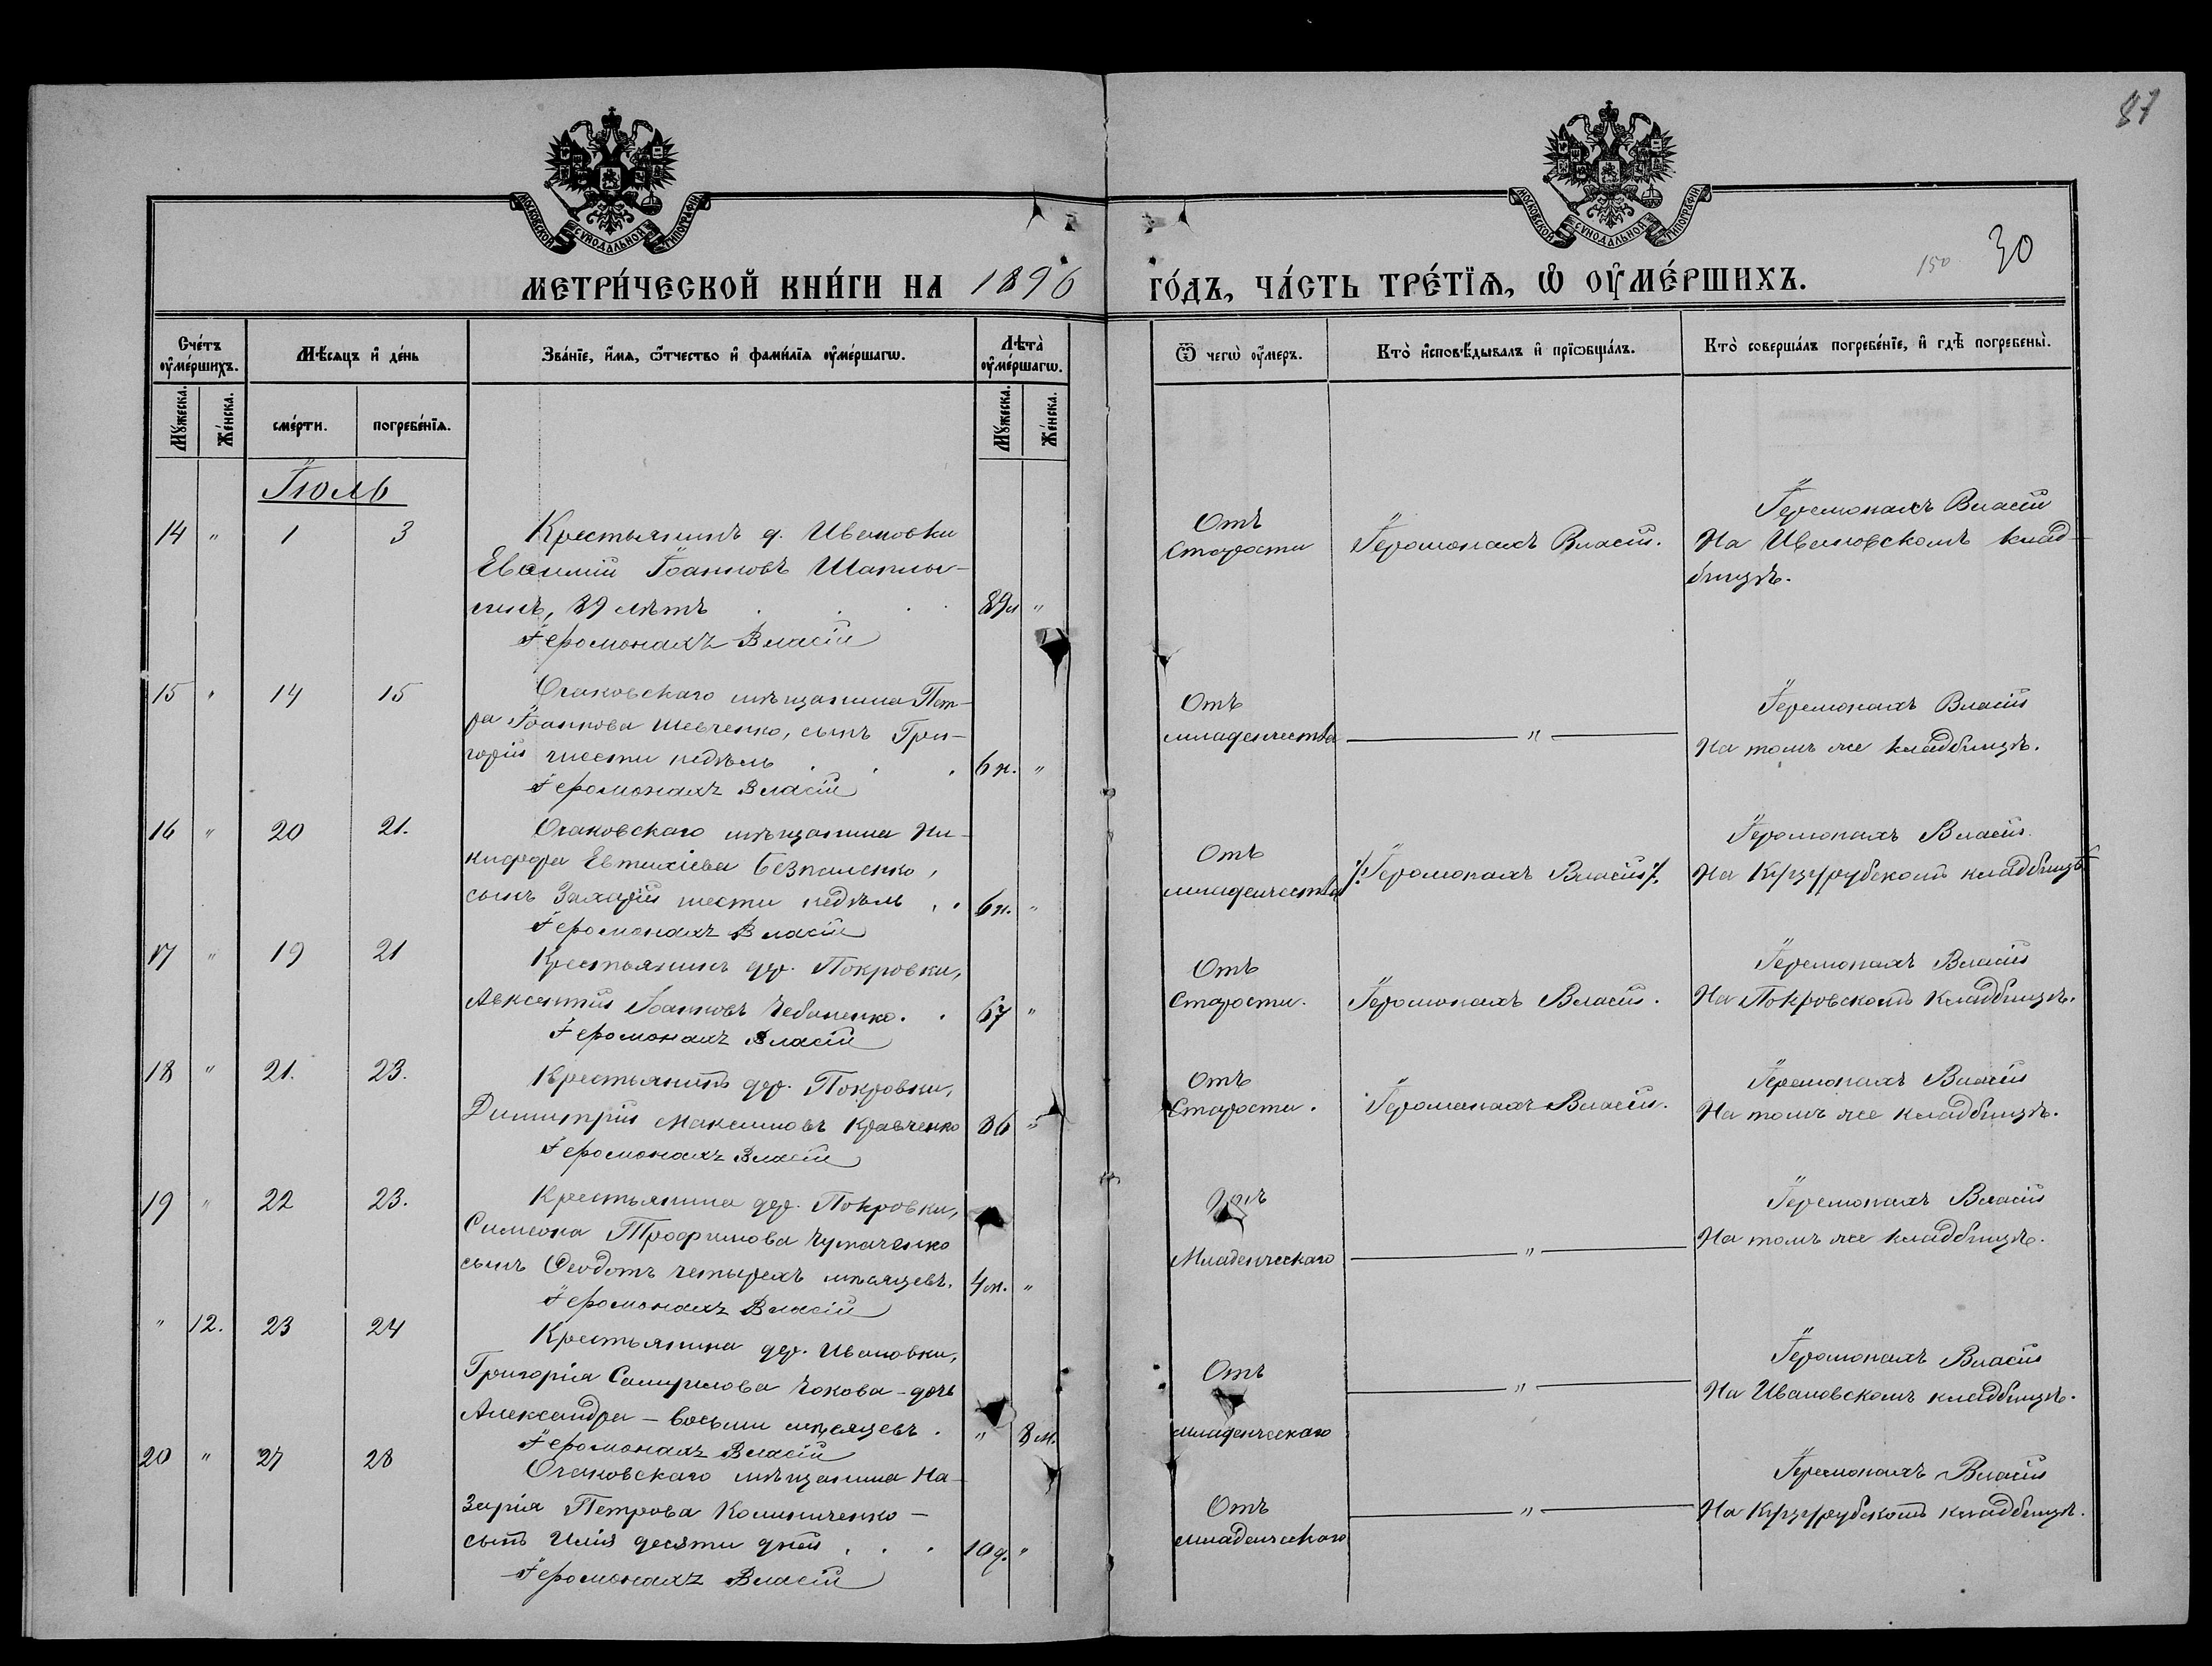 87
30
150
МОСКОВСКОЙ СѴНОДАЛЬНОЙ ТИПОГРАФІИ
МОСКОВСКОЙ СѴНОДАЛЬНОЙ ТИПОГРАФІИ
МЕТРИ́ЧЕСКОЙ КНИ́ГИ НА 1896 ГО́ДЪ, ЧА́СТЬ ТРЕ́ТІѦ, Ѡ҆ ОУ҆МЕ́РШИХЪ.
Сче́тъ оу҆ме́ршихъ. Мѣ́сяцъ и҆ де́нь Зва́нїе, и҆́мя, ѻ҆́тчество и҆ фами́лїя оу҆ме́ршагѡ. Лѣта̀ оу҆ме́ршагѡ. Ѿ чегѡ̀ оу҆́меръ. Кто̀ и҆сповѣ́дывалъ и҆ прїѡбща́лъ. Кто̀ соверша́лъ погребе́нїе, и҆ гдѣ̀ погребены̀.
Мꙋ́жеска. Же́нска. сме́рти. погребе́нїя. Мꙋ́жеска. Же́нска.
Іюль
14 " 1 3 Крестьянинъ д. Ивановки
Евѳимій Іоанновъ
89 лѣтъ . . . 89л "
Іеромонахъ Власій
Отъ
Старости
Іеромонахъ Власій.
Іеромонахъ Власій
На Ивановскомъ клад-
бищѣ.
15 " 14 15 Очаковскаго мѣщанина Пет-
ра Іоаннова Шевченко, сынъ Гри-
горій шести недѣль . . . 6 н. "
Іеромонахъ Власій
Отъ
младенчества
"
Іеромонахъ Власій
На томъ же кладбищѣ.
16 " 20 21. Очаковскаго мѣщанина Ни-
кифора Евтихіева Безпаленко,
сынъ Захарій шести недѣль . . 6н. "
Іеромонахъ Власій
Отъ
младенчества
Іеромонахъ Власій
Іеромонахъ Власій.
На Куцурубскомъ кладбищѣ
17 " 19 21 Крестьянинъ дер. Покровки,
Авксентій Іоанновъ Чебаненко. . 67 "
Іеромонахъ Власій
Отъ
Старости.
Іеромонахъ Власій.
Іеромонахъ Власій
На Покровскомъ Кладбищѣ.
18 " 21. 23. Крестьянинъ дер. Покровки,
Димитрій Максимовъ Кравченко 86 "
Іеромонахъ Власій
Отъ
Старости.
Іеромонахъ Власій.
Іеромонахъ Власій
На томъ же кладбищѣ.
19 " 22 23. Крестьянина дер. Покровки,
Симеона Трофимова Чумаченко
сынъ Ѳеодотъ четырехъ мѣсяцевъ. 4 м. "
Іеромонахъ Власій
Отъ
Младенческаго
"
Іеромонахъ Власій
На томъ же кладбищѣ.
" 12. 23 24 Крестьянина дер. Ивановки,
Григорія Чокова - дочь
Александра - восьми мѣсяцевъ . " 8 м.
Іеромонахъ Власій
Отъ
младенческаго
"
Іеромонахъ Власій
На Ивановскомъ кладбищѣ.
20 " 27 28 Очаковскаго мѣщанина На-
зарія Петрова Калиниченко -
сынъ Илія десяти дней . . . 10 д. "
Іеромонахъ Власій
Отъ
младенческаго
"
Іеромонахъ Власій
На Куцурубскомъ кладбищѣ.